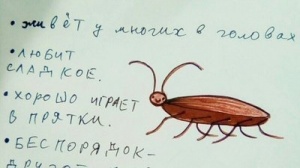 • живёт у многих в головах
• ЛЮБИТ
СЛАДКОЕ.
• ХОРОШО ИГРАЕТ
В ПРЯТКИ.
• БЕСПОРЯДОК-